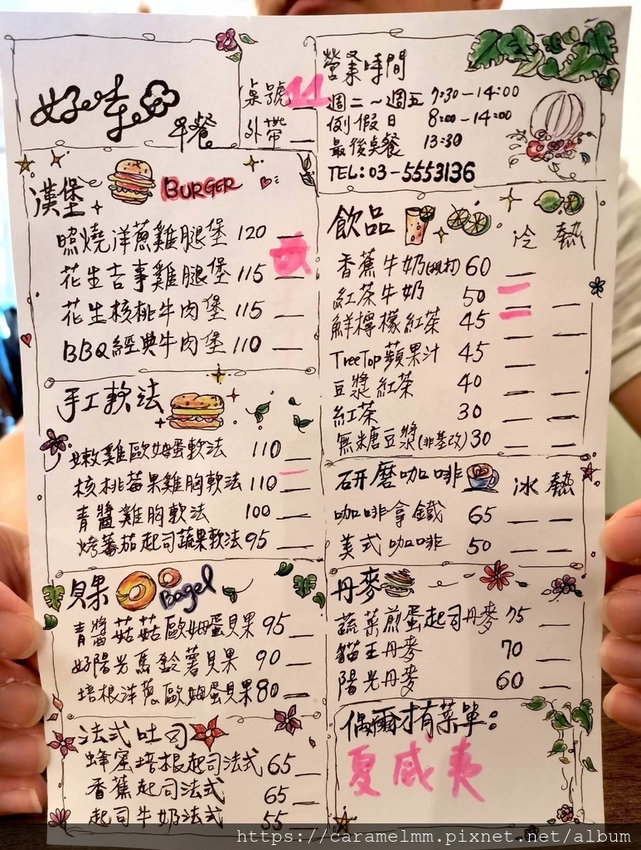 好味
早餐
桌號 11
外帶
營業時間
週二～週五 7:30-14:00
例假日 8:00-14:00
最後點餐 13:30
TEL:03-5553136
漢堡 BURGER
照燒洋蔥雞腿堡 120
花生吉事雞腿堡 115
花生核桃牛肉堡 115
BBQ經典牛肉堡 110
手工軟法
嫩雞歐姆蛋軟法 110
核桃莓果雞胸軟法 110
青醬雞胸軟法 100
烤蕃茄起司蔬果軟法 95
貝果 Bagel
青醬菇菇歐姆蛋貝果 95
好陽光馬鈴薯貝果 90
培根洋蔥歐姆蛋貝果 80
法式吐司
蜂蜜培根起司法式 65
香蕉起司法式 65
起司牛奶法式 55
飲品
冷 熱
香蕉牛奶(現打) 60
紅茶牛奶 50
鮮檸檬紅茶 45
TreeTop蘋果汁 45
豆漿紅茶 40
紅茶 30
無糖豆漿(非基改) 30
研磨咖啡 冰 熱
咖啡拿鐵 65
美式咖啡 50
丹麥
蔬菜煎蛋起司丹麥 75
貓王丹麥 70
陽光丹麥 60
偶爾才有菜單：
夏威夷
https://caramelmm.pixnet.net/album